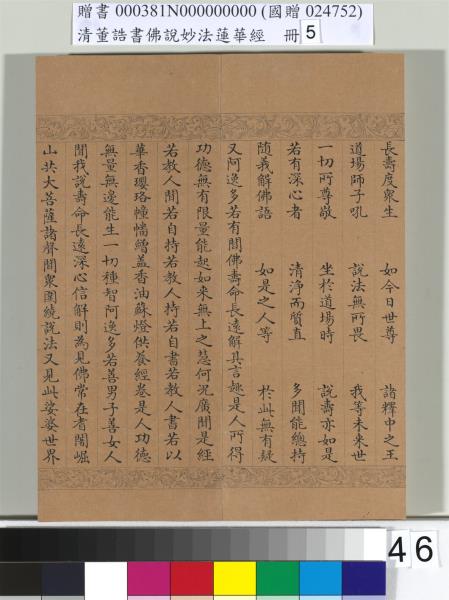 贈書 000381N000000000 (國贈 024752)
清董誥書佛說妙法蓮華經 冊 5
長壽度衆生 如今日世尊 諸釋中之王
道場師子吼 說法無所畏 我等未来世
一切所尊敬 坐於道場時 說壽亦如是
若有深心者 清淨而質直 多聞能總持
随義解佛語 如是之人等 於此無有疑
又阿逸多若有聞佛壽命長遠解其言趣是人所得
功德無有限量能起如来無上之慧何况廣聞是經
若教人聞若自持若教人持若自書若教人書若以
華香瓔珞幢幡繒蓋香油蘇燈供養經卷是人功德
無量無邊能生一切種智阿逸多若善男子善女人
聞我說壽命長遠深心信解則為見佛常在耆闍崛
山共大菩薩諸聲聞衆圍繞說法又見此娑婆世界
46